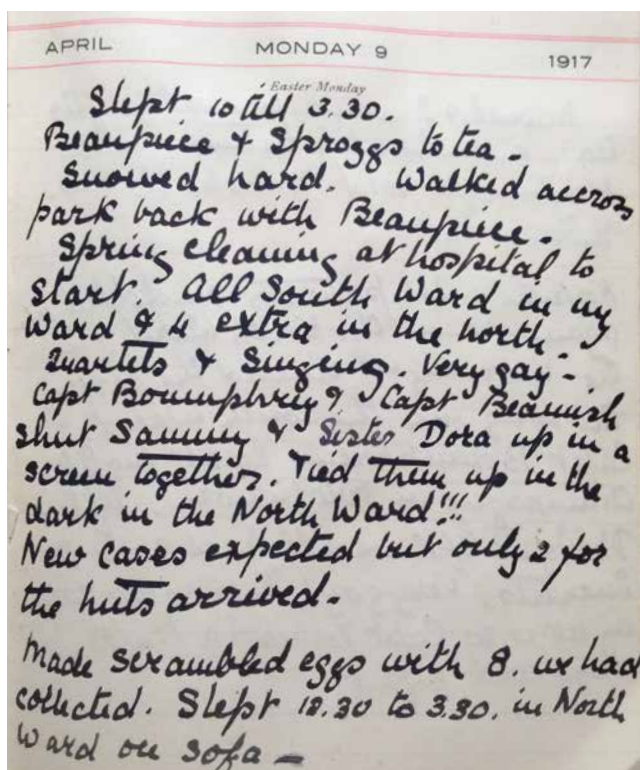 APRIL MONDAY 9 1917
Easter Monday
Slept 10 till 3.30.
Beaupiece & Sproggs to tea -
Snowed hard. Walked accross
park back with Beaupiece -
Spring cleaning at hospital to
start. All South Ward in my
Ward & 4 extra in the north
Quartets & Singing. Very gay -
Capt Boumphrey & Capt Beamish
shut Sammy & Sister Dora up in a
screen together. Tied them up in the
dark in the North Ward!!!
New cases expected but only 2 for
the huts arrived -
Made scrambled eggs with 8. we had
collected. Slept 12.30 to 3.30. in North
Ward on sofa -